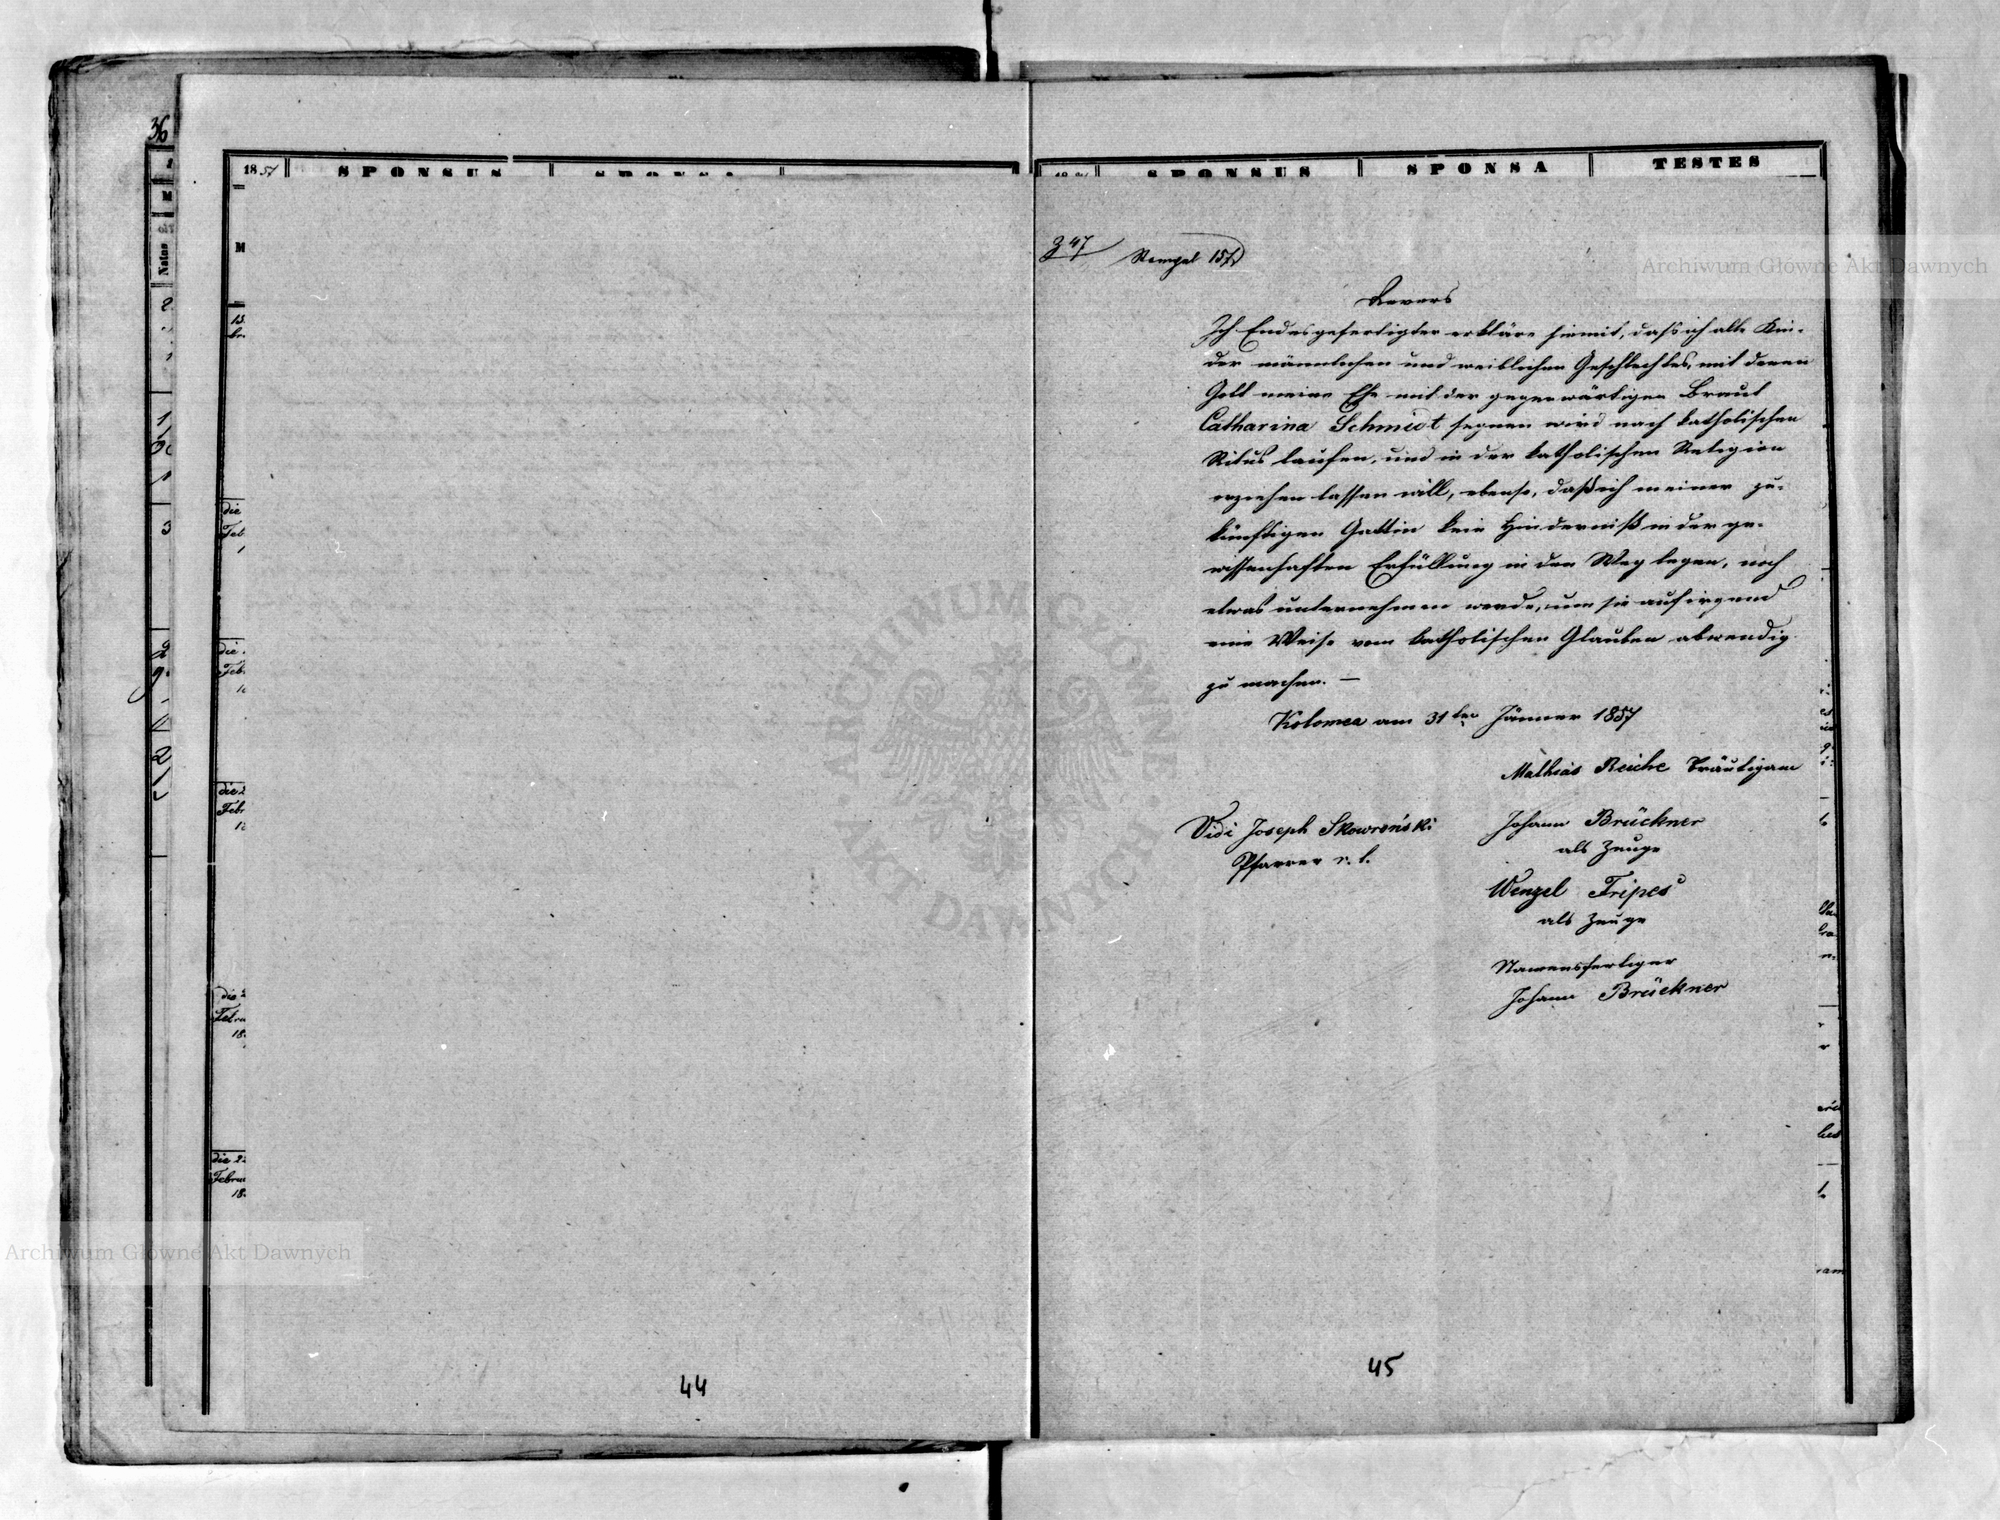 36
1857
SPONSUS
SPONSA
SPONSUS
SPONSA
TESTES
Natus
M
15.
die
Feb
1
die
Feb.
die 2
Febr
die 2
Febru
18
die 2
Februa
18
Archiwum Główne Akt Dawnych
47
Stempel 15
Revers
Ich Endesgefertigter erkläre hiemit, dass ich alle Kin-
der männlichen und weiblichen Geschlechtes, mit denen
Gott meine Ehe mit der gegenwärtigen Braut
Catharina Schmidt segnen wird nach katholischen
Ritus taufen, und in der katholischen Religion
erziehen lassen will, ebenso, daß ich meiner zu-
künftigen Gattin kein Hinderniß in der ge-
wissenhaften Erfüllung in den Weg legen, noch
etwas unternehmen werde, um sie auf irgend
eine Weise vom katholischen Glauben abwendig
zu machen. —
Kolomea am 31ten Jänner 1857
Mathias Reiche Bräutigam
Vidi Joseph Skowroński
Pfarrer r. l.
Johann Brückner
als Zeuge
Wenzel Fripes
als Zeuge
Namensfertiger
Johann Brückner
ARCHIWUM GŁÓWNE
AKT DAWNYCH
Archiwum Główne Akt Dawnych
44
45